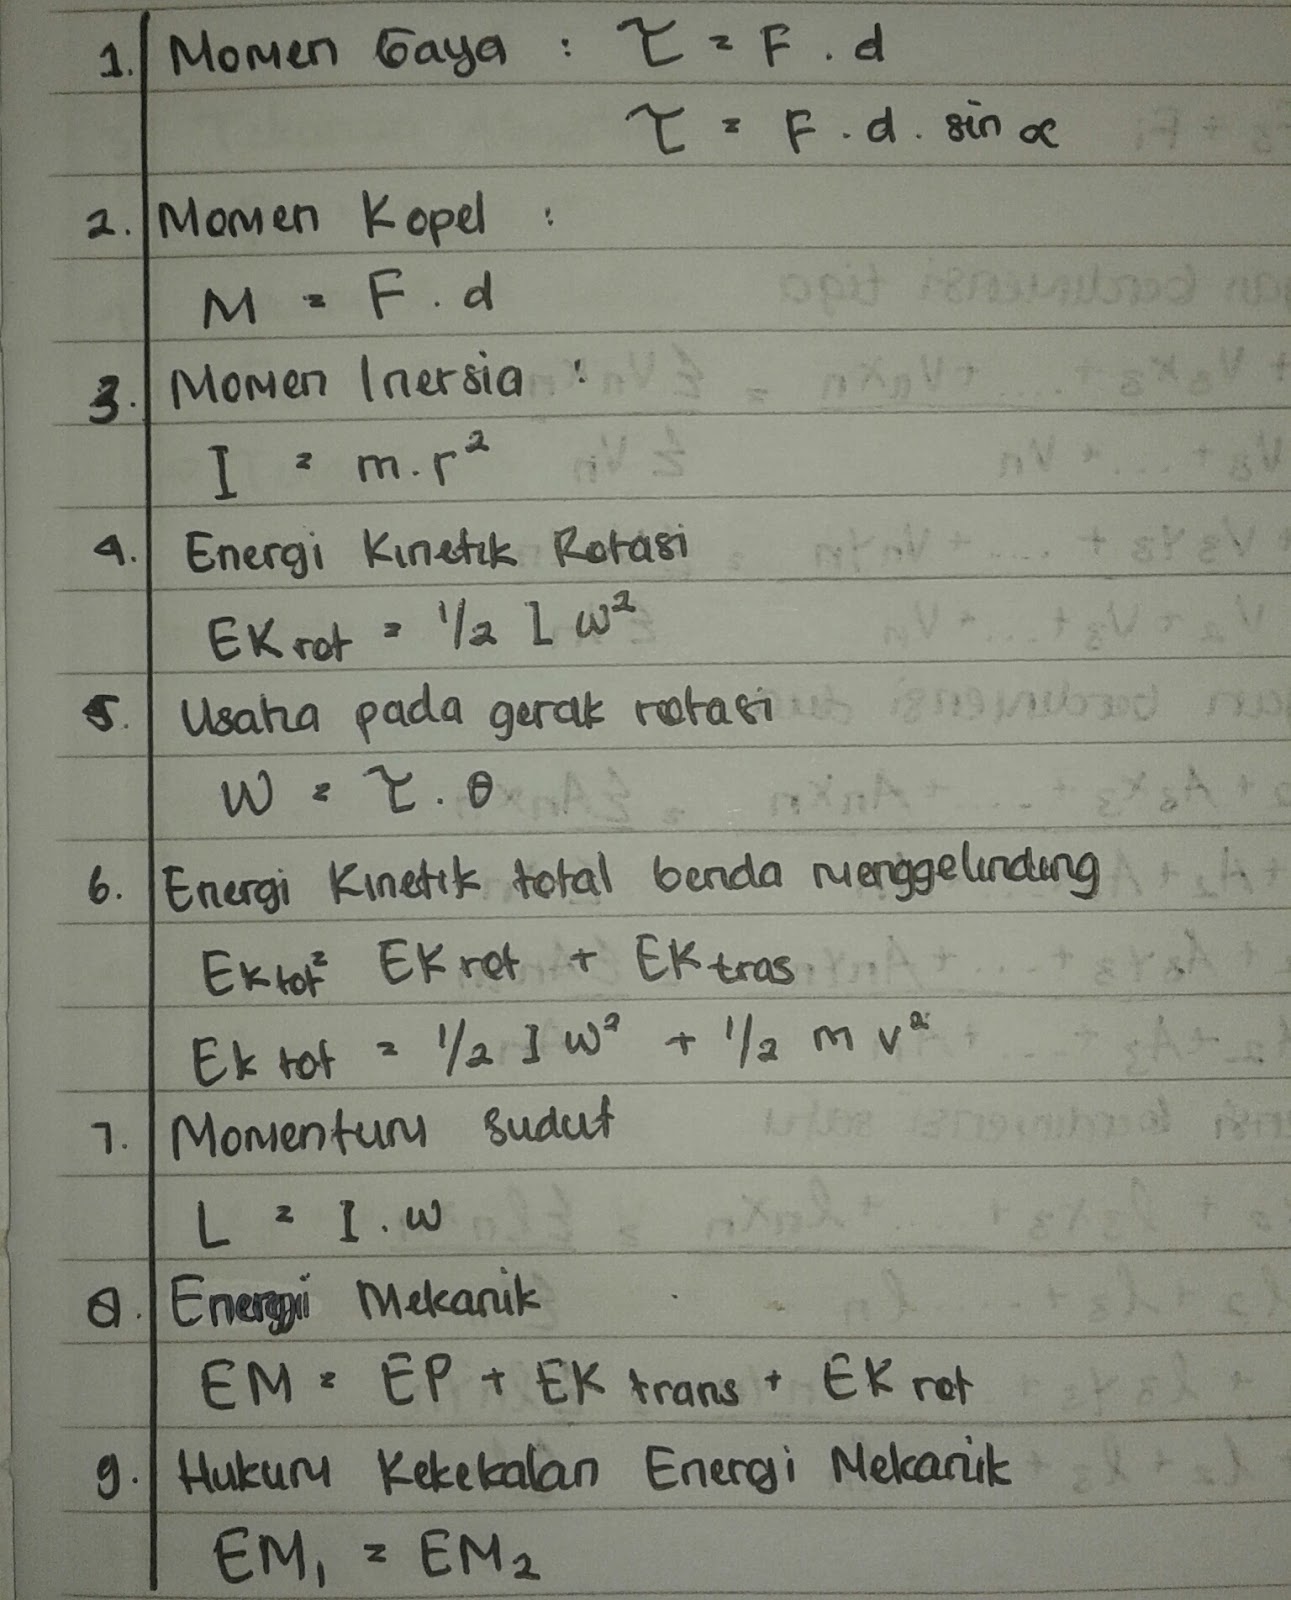 1. Momen Gaya : τ = F . d
τ = F . d . sin α
2. Momen Kopel :
M = F . d
3. Momen Inersia :
I = m . r²
4. Energi Kinetik Rotasi
EK rot = 1/2 I ω²
5. Usaha pada gerak rotasi
W = τ . θ
6. Energi Kinetik total benda menggelinding
Ek tot = EK rot + EK tras
Ek tot = 1/2 I ω² + 1/2 m v²
7. Momentum sudut
L = I . ω
8. Energi Mekanik
EM = EP + EK trans + EK rot
9. Hukum Kekekalan Energi Mekanik
EM₁ = EM₂